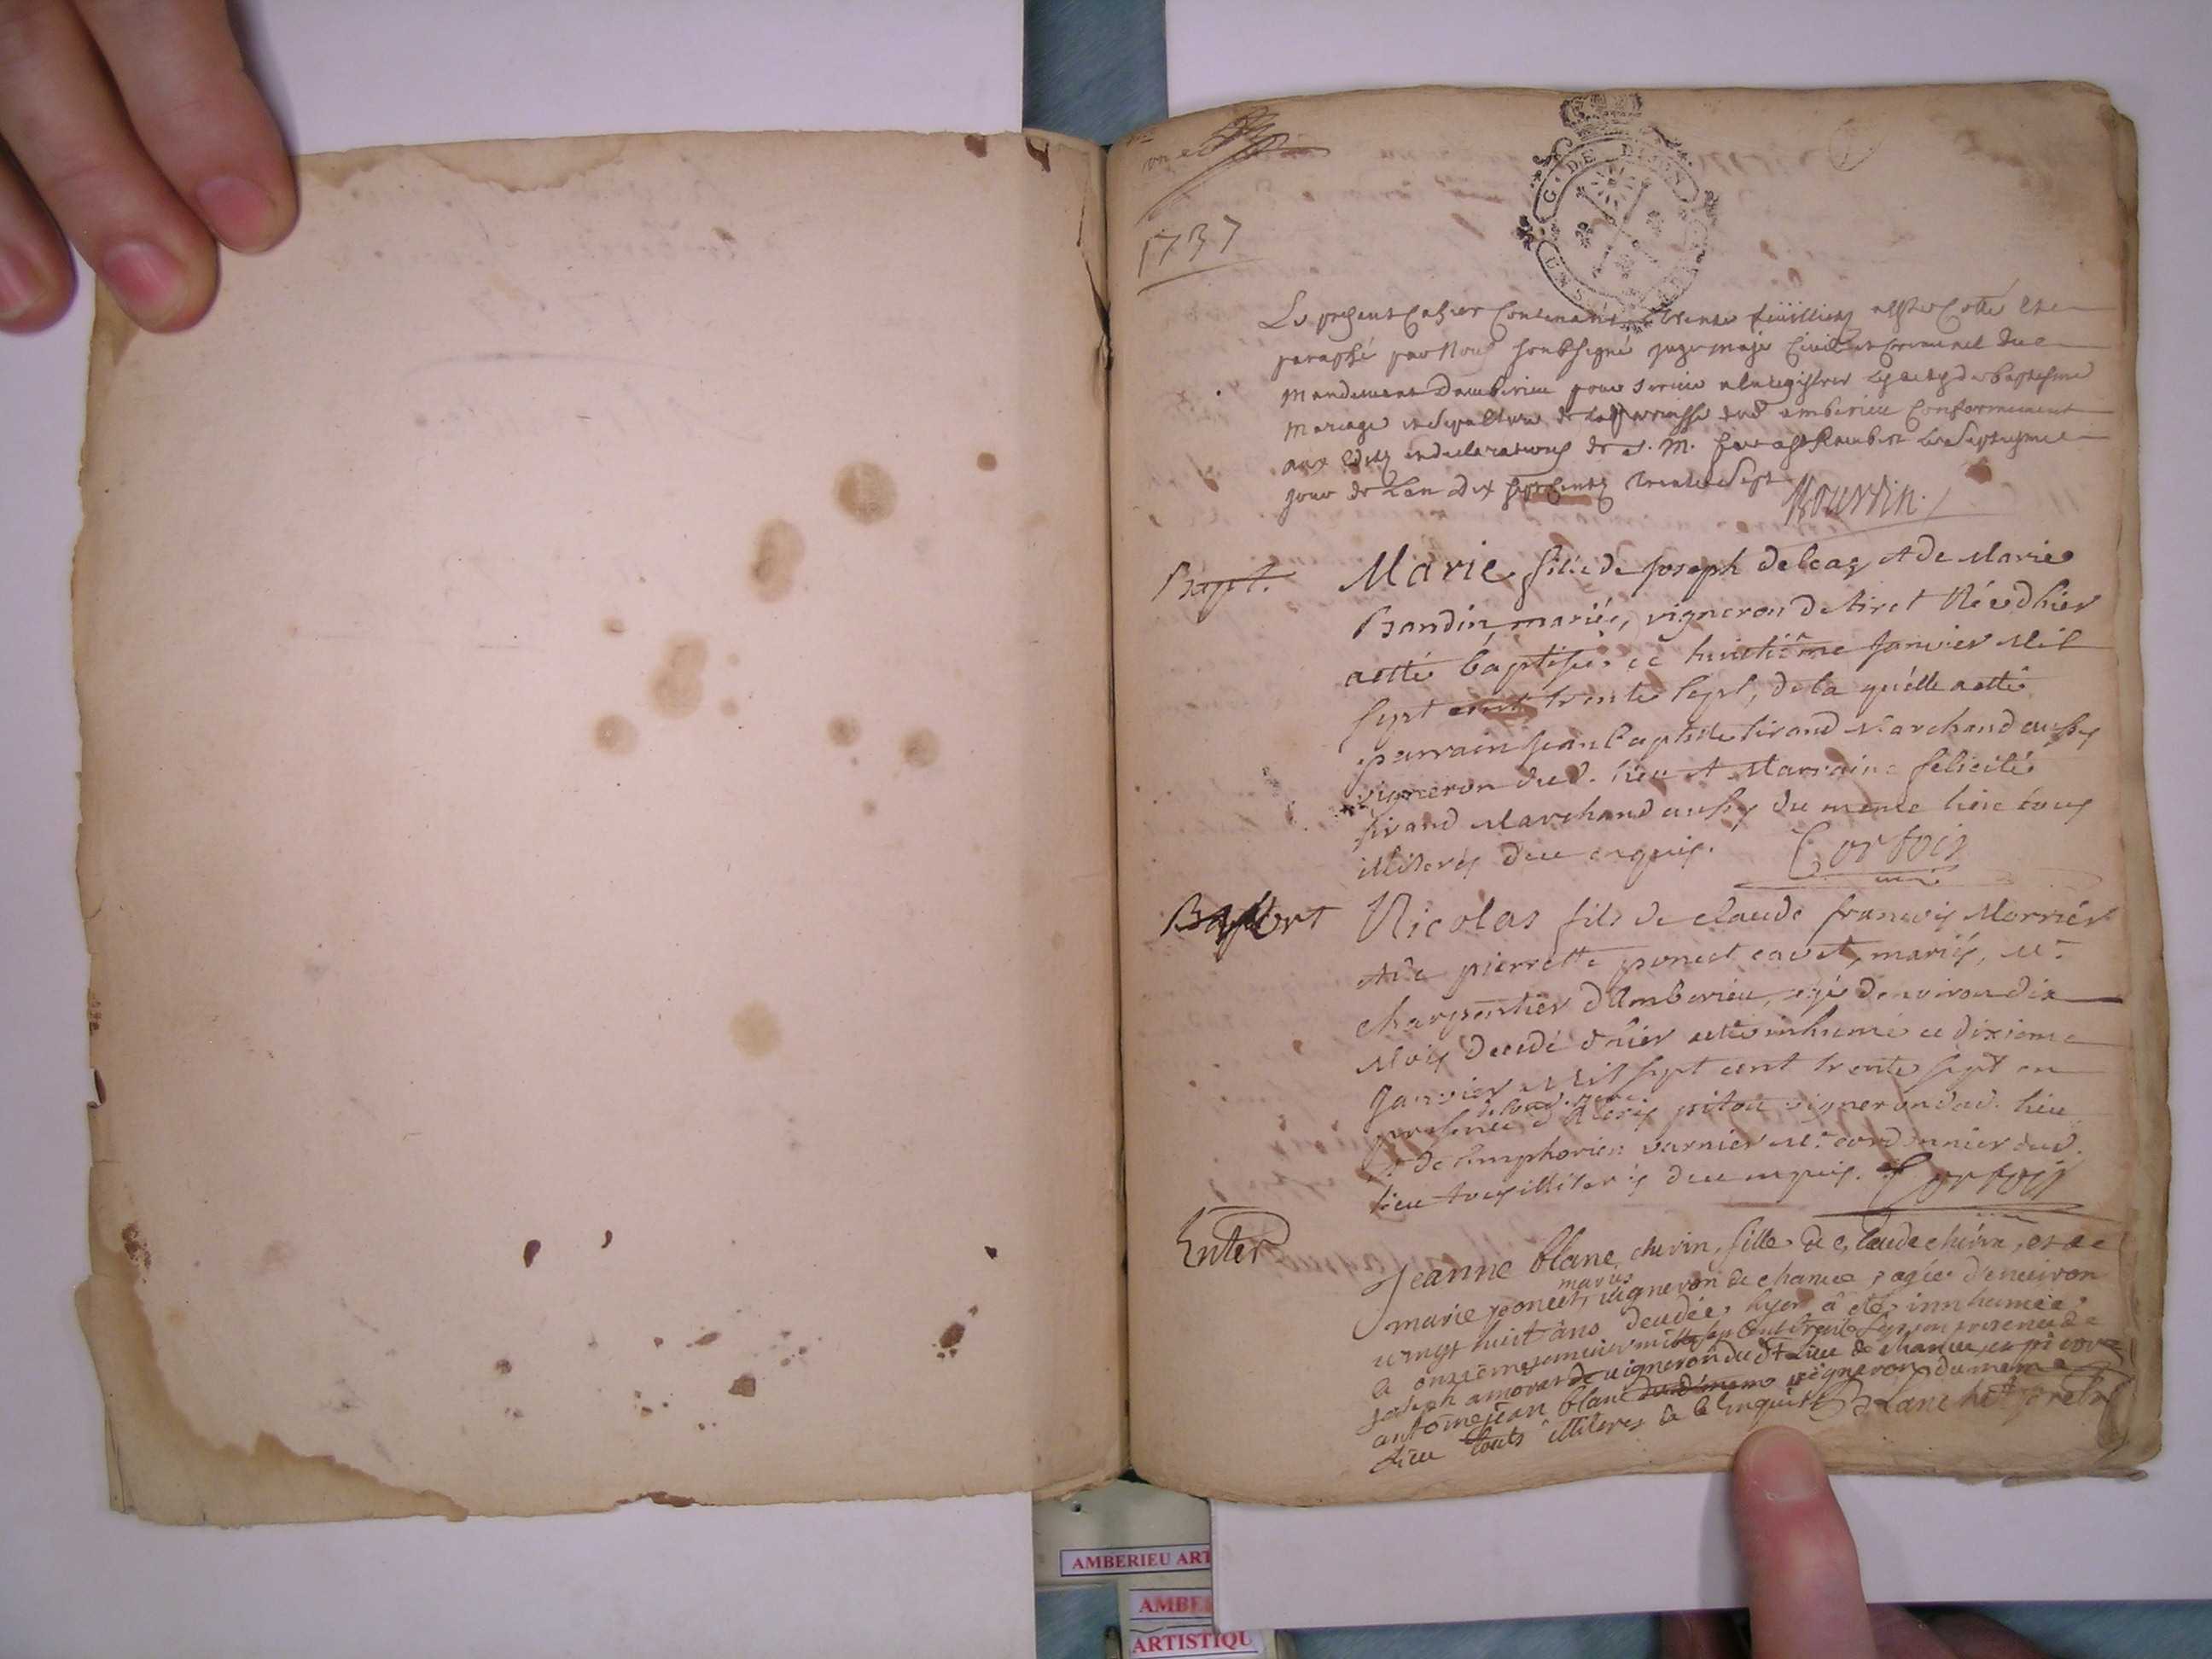 1737
G. DE DIJON
Le present Cahier Contenant trente feüillietz a esté Cotté et
paraphé par Nous soubsigné juge maje Civil et Criminel du
Mandement Dambérieu pour servir a Enregistrer les actes de baptesme
Mariage et Sepulture de la parroisse dud amberieu Conformement
aux Edits et declarations de S. M. fait a St Rambert le Septieme
jour de Lan dix sept Cents trente Sept
Bapt.
Marie fille de joseph et de Marie
Bandin mariés, vigneron de tiret Née d'hier
a etté baptisée ce huictième Janvier Mil
sept cent trente sept, de la quelle a etté
parrain jean baptiste tirand Marchand aussy
vigneron dud. lieu et Marraine felicité
tirand Marchand aussy du meme lieu tous
illiterés deue enquis. Cortois
curé
Mort
Nicolas fils de claude françois Morrier
et de pierrette poncet cavet, mariés, Me
charpentier d'Amberieu, agé d'environ dix
Mois decedé d'hier a etté inhumé ce dixieme
Janvier Mil sept cent trente sept en
presence pitou vigneron dud. lieu
et de simphorien varnier Me cordonnier dud.
lieu tous illiterés deue enquis. Cortois
Enter
Jeanne blanc chevin, fille de Claude chevin, et de
marie poncet, mariés vigneron de chance, agée d'enuiron
uingt huict ans decedée hyer â etés innhumée
le onzieme januier mille sept cent trente sept en presence de
joseph vigneron du dt Lieu de chance, et
antoine jean blanc vigneron du meme
Lieu touts illiteres de Blanchet pretre
AMBERIEU ART
AMBE
ARTISTIQU